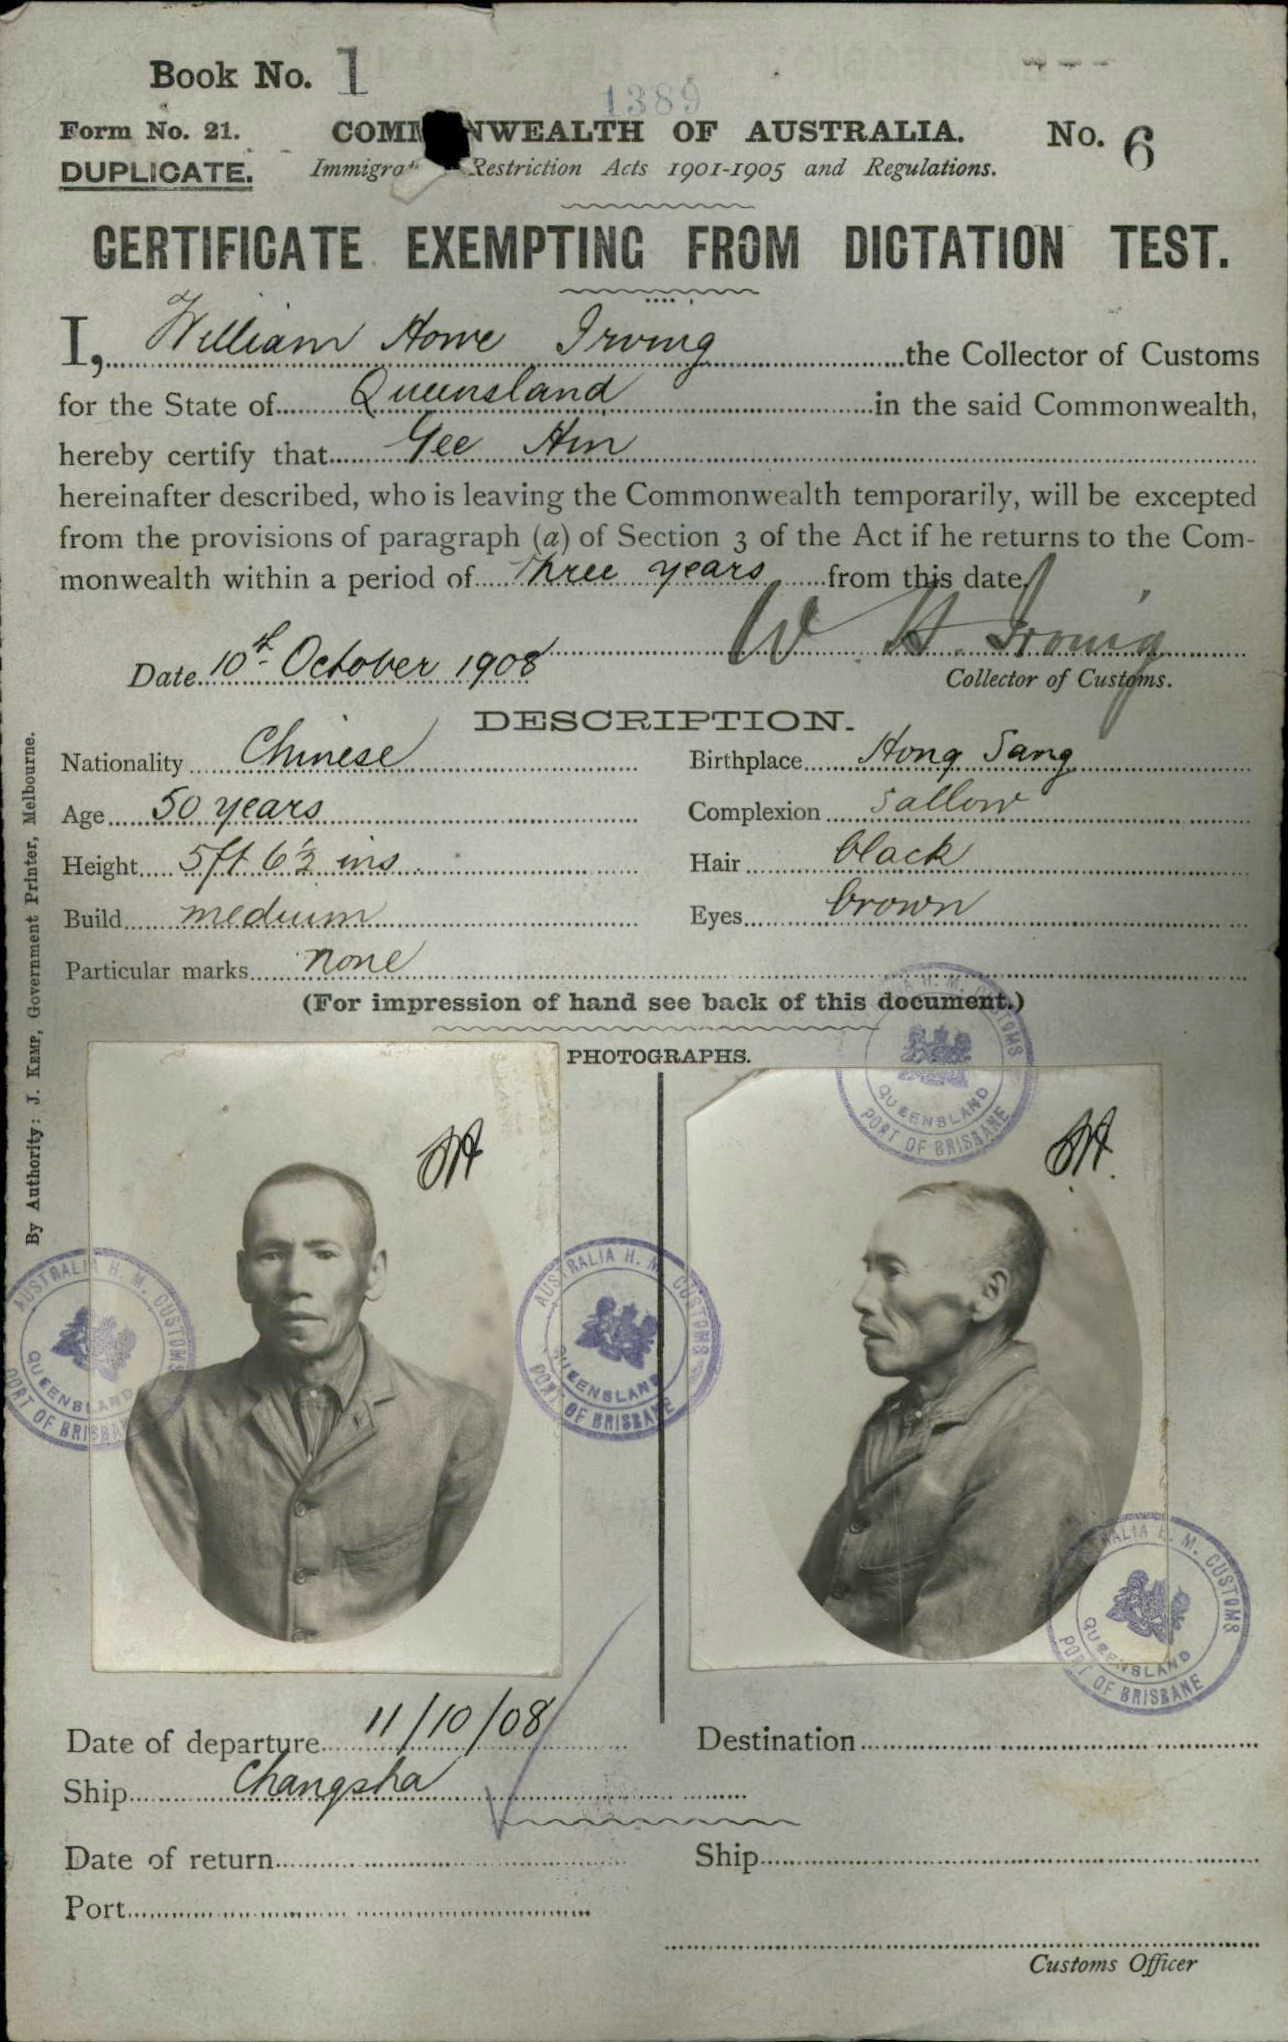 Book No. 1
1389
Form No. 21.
COMM NWEALTH OF AUSTRALIA.
No. 6
DUPLICATE.
Immigrat Restriction Acts 1901-1905 and Regulations.
CERTIFICATE EXEMPTING FROM DICTATION TEST.
I, William Howe Irving the Collector of Customs
for the State of Queensland in the said Commonwealth,
hereby certify that Gee Hin
hereinafter described, who is leaving the Commonwealth temporarily, will be excepted
from the provisions of paragraph (a) of Section 3 of the Act if he returns to the Com-
monwealth within a period of three years from this date.
W. H. Irving
Date 10th October 1908
Collector of Customs.
DESCRIPTION.
Nationality Chinese Birthplace Hong Sang
Age 50 years Complexion sallow
Height 5ft 6½ ins Hair black
Build medium Eyes brown
Particular marks none
(For impression of hand see back of this document.)
PHOTOGRAPHS.
By Authority: J. KEMP, Government Printer, Melbourne.
AUSTRALIA H. M. CUSTOMS
QUEENSLAND
PORT OF BRISBANE
AUSTRALIA H. M. CUSTOMS
QUEENSLAND
PORT OF BRISBANE
AUSTRALIA H. M. CUSTOMS
QUEENSLAND
PORT OF BRISBANE
AUSTRALIA H. M. CUSTOMS
QUEENSLAND
PORT OF BRISBANE
Date of departure 11/10/08 Destination
Ship Changsha
Date of return Ship
Port
Customs Officer